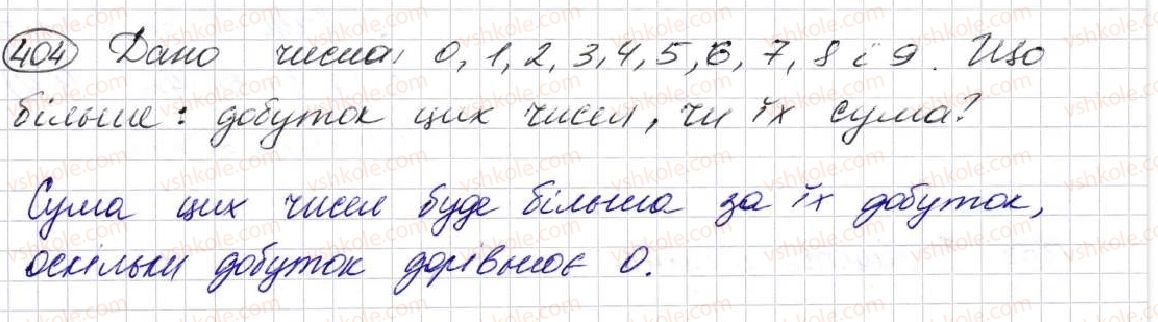 404 Дано числа: 0, 1, 2, 3, 4, 5, 6, 7, 8 і 9. Що
більше: добуток цих чисел, чи їх сума?
Сума цих чисел буде більша за їх добуток,
оскільки добуток дорівнює 0.